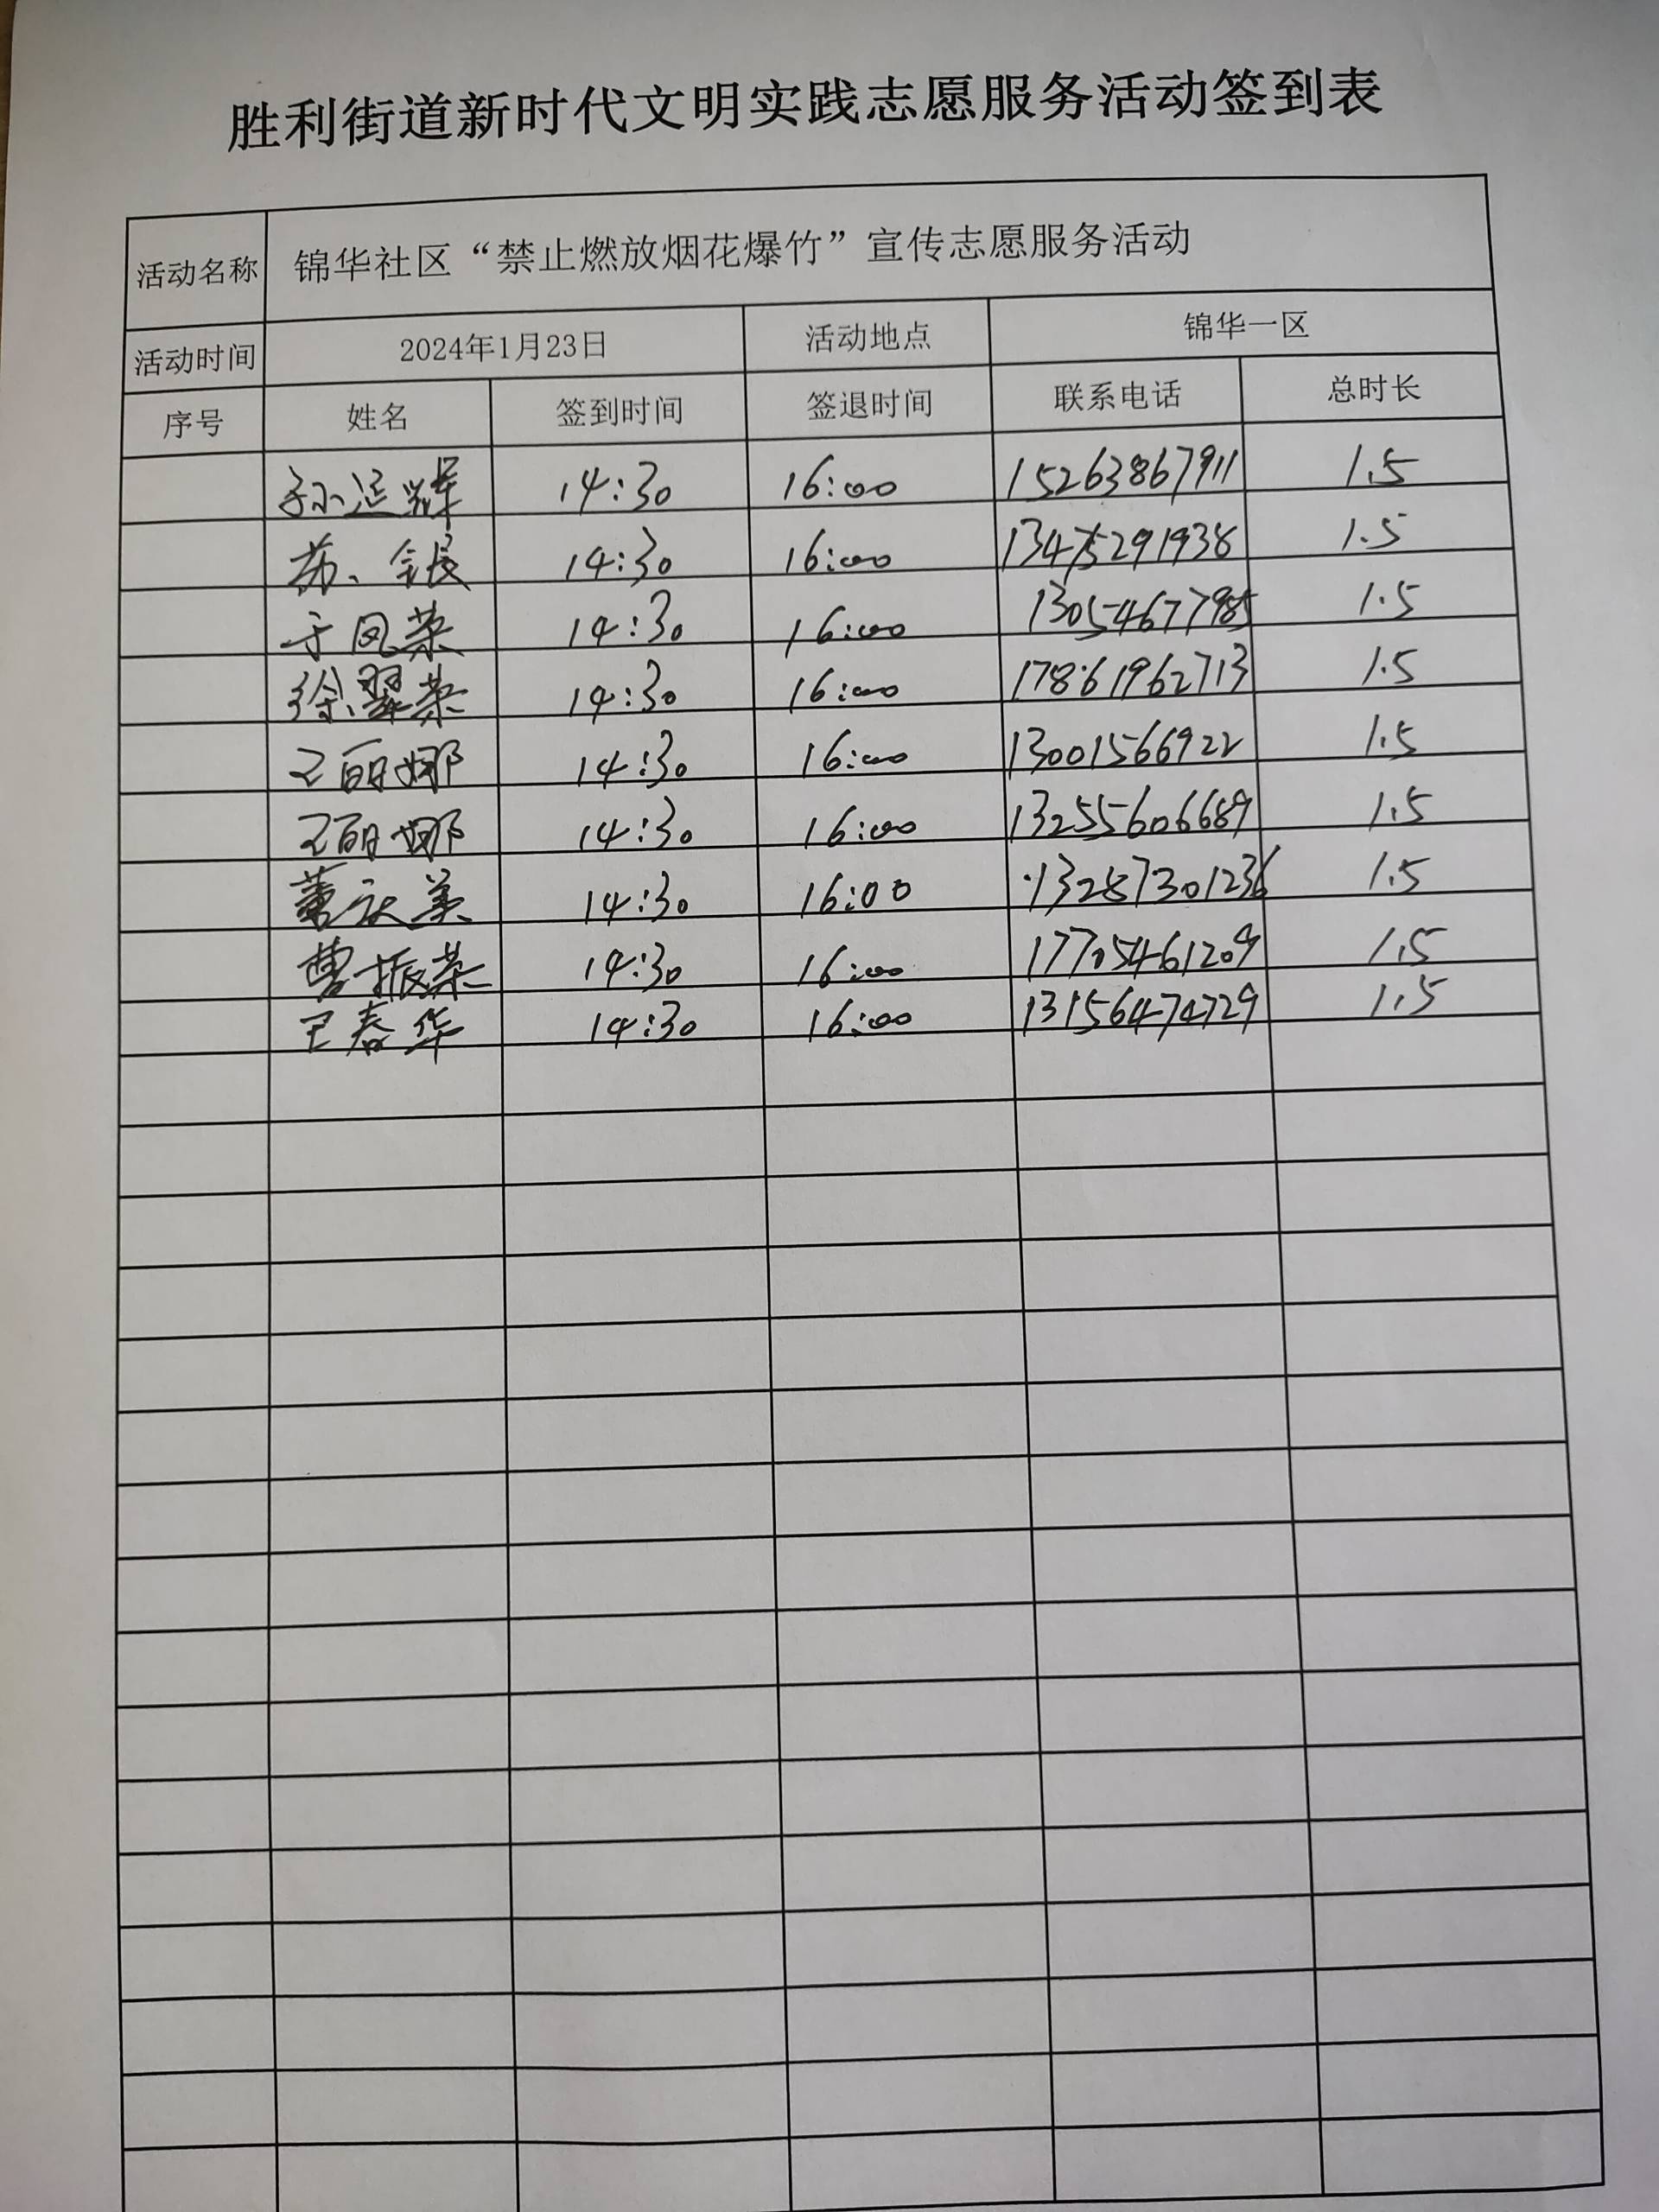 胜利街道新时代文明实践志愿服务活动签到表
活动名称 锦华社区“禁止燃放烟花爆竹”宣传志愿服务活动
活动时间 2024年1月23日 活动地点 锦华一区
序号 姓名 签到时间 签退时间 联系电话 总时长
孙运辉 14:30 16:00 15263867911 1.5
苏 14:30 16:00 13475291938 1.5
于凤荣 14:30 16:00 13054677985 1.5
徐翠荣 14:30 16:00 17861962713 1.5
王丽娜 14:30 16:00 13001566922 1.5
王丽娜 14:30 16:00 13255606689 1.5
美 14:30 16:00 13287301236 1.5
曹振荣 14:30 16:00 17705461209 1.5
王春华 14:30 16:00 13156474729 1.5